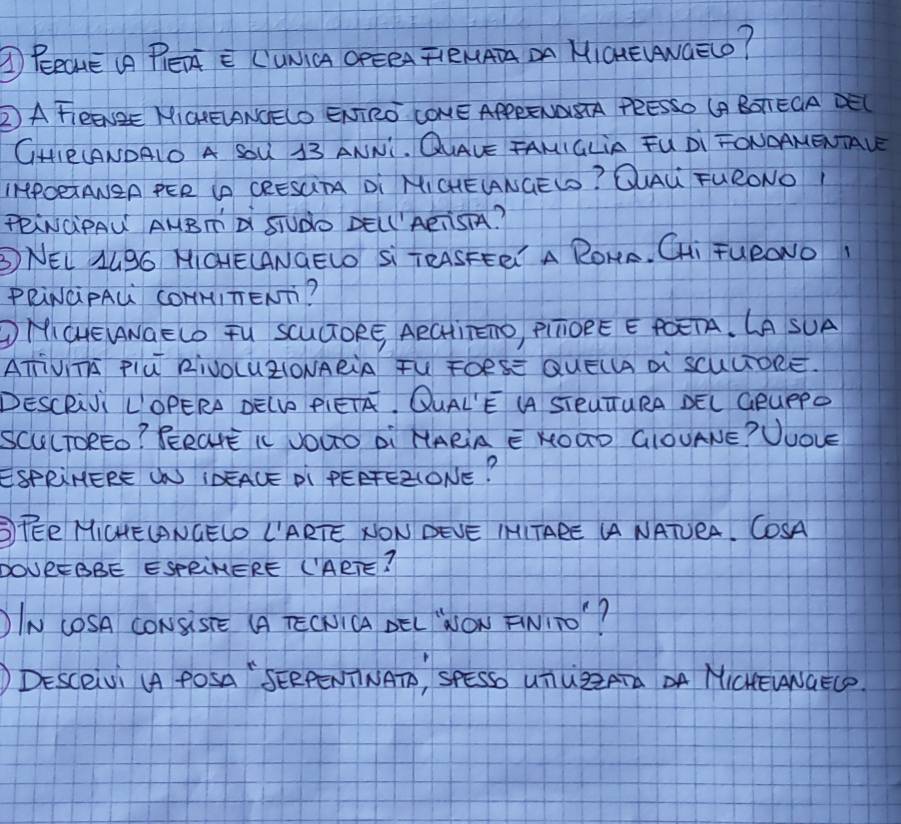 1) PERCHÈ LA PIETÀ È L'UNICA OPERA FIRMATA DA MICHELANGELO?
2) A FIRENZE MICHELANGELO ENTRÒ COME APPRENDISTA PRESSO LA BOTTEGA DEL
GHIRLANDAIO A SOLI 13 ANNI. QUALE FAMIGLIA FU DI FONDAMENTALE
IMPORTANZA PER LA CRESCITA DI MICHELANGELO? QUALI FURONO I
PRINCIPALI AMBITI DI STUDIO DELL'ARTISTA?
3) NEL 1496 MICHELANGELO SI TRASFERÌ A ROMA. CHI FURONO I
PRINCIPALI COMMITTENTI?
4) MICHELANGELO FU SCULTORE, ARCHITETTO, PITTORE E POETA. LA SUA
ATTIVITÀ PIÙ RIVOLUZIONARIA FU FORSE QUELLA DI SCULTORE.
DESCRIVI L'OPERA DELLA PIETÀ. QUAL'È LA STRUTTURA DEL GRUPPO
SCULTOREO? PERCHÈ IL VOLTO DI MARIA È MOLTO GIOVANE? VUOLE
ESPRIMERE UN IDEALE DI PERFEZIONE?
5) PER MICHELANGELO L'ARTE NON DEVE IMITARE LA NATURA. COSA
DOVREBBE ESPRIMERE L'ARTE?
) IN COSA CONSISTE LA TECNICA DEL "NON FINITO"?
) DESCRIVI LA POSA "SERPENTINATA", SPESSO UTILIZZATA DA MICHELANGELO.